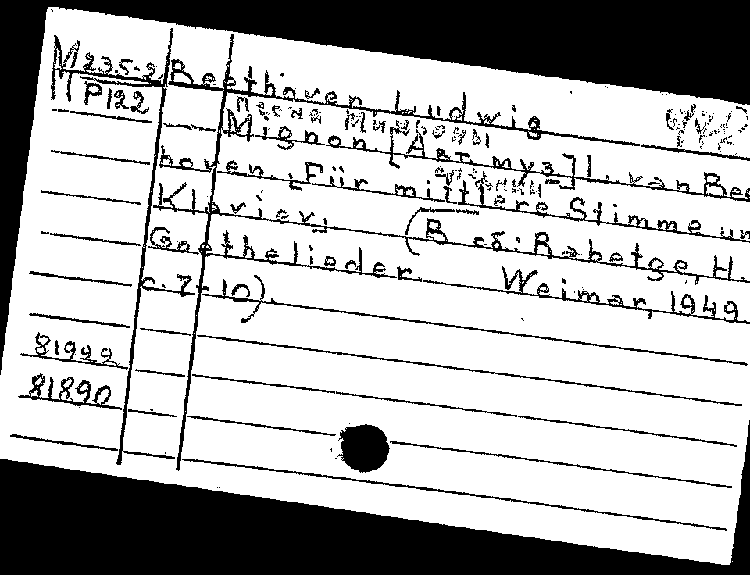 М 23.5-2 Beethoven Ludwig
P122
Песня Миньоны
Mignon. [Авт. муз.] L. van Bee
hoven. Für mittlere Stimme un
Klavier. (В сб: Rabetge, H.
Goethelieder. Weimar, 1949
с. 7-10).
81999
81890